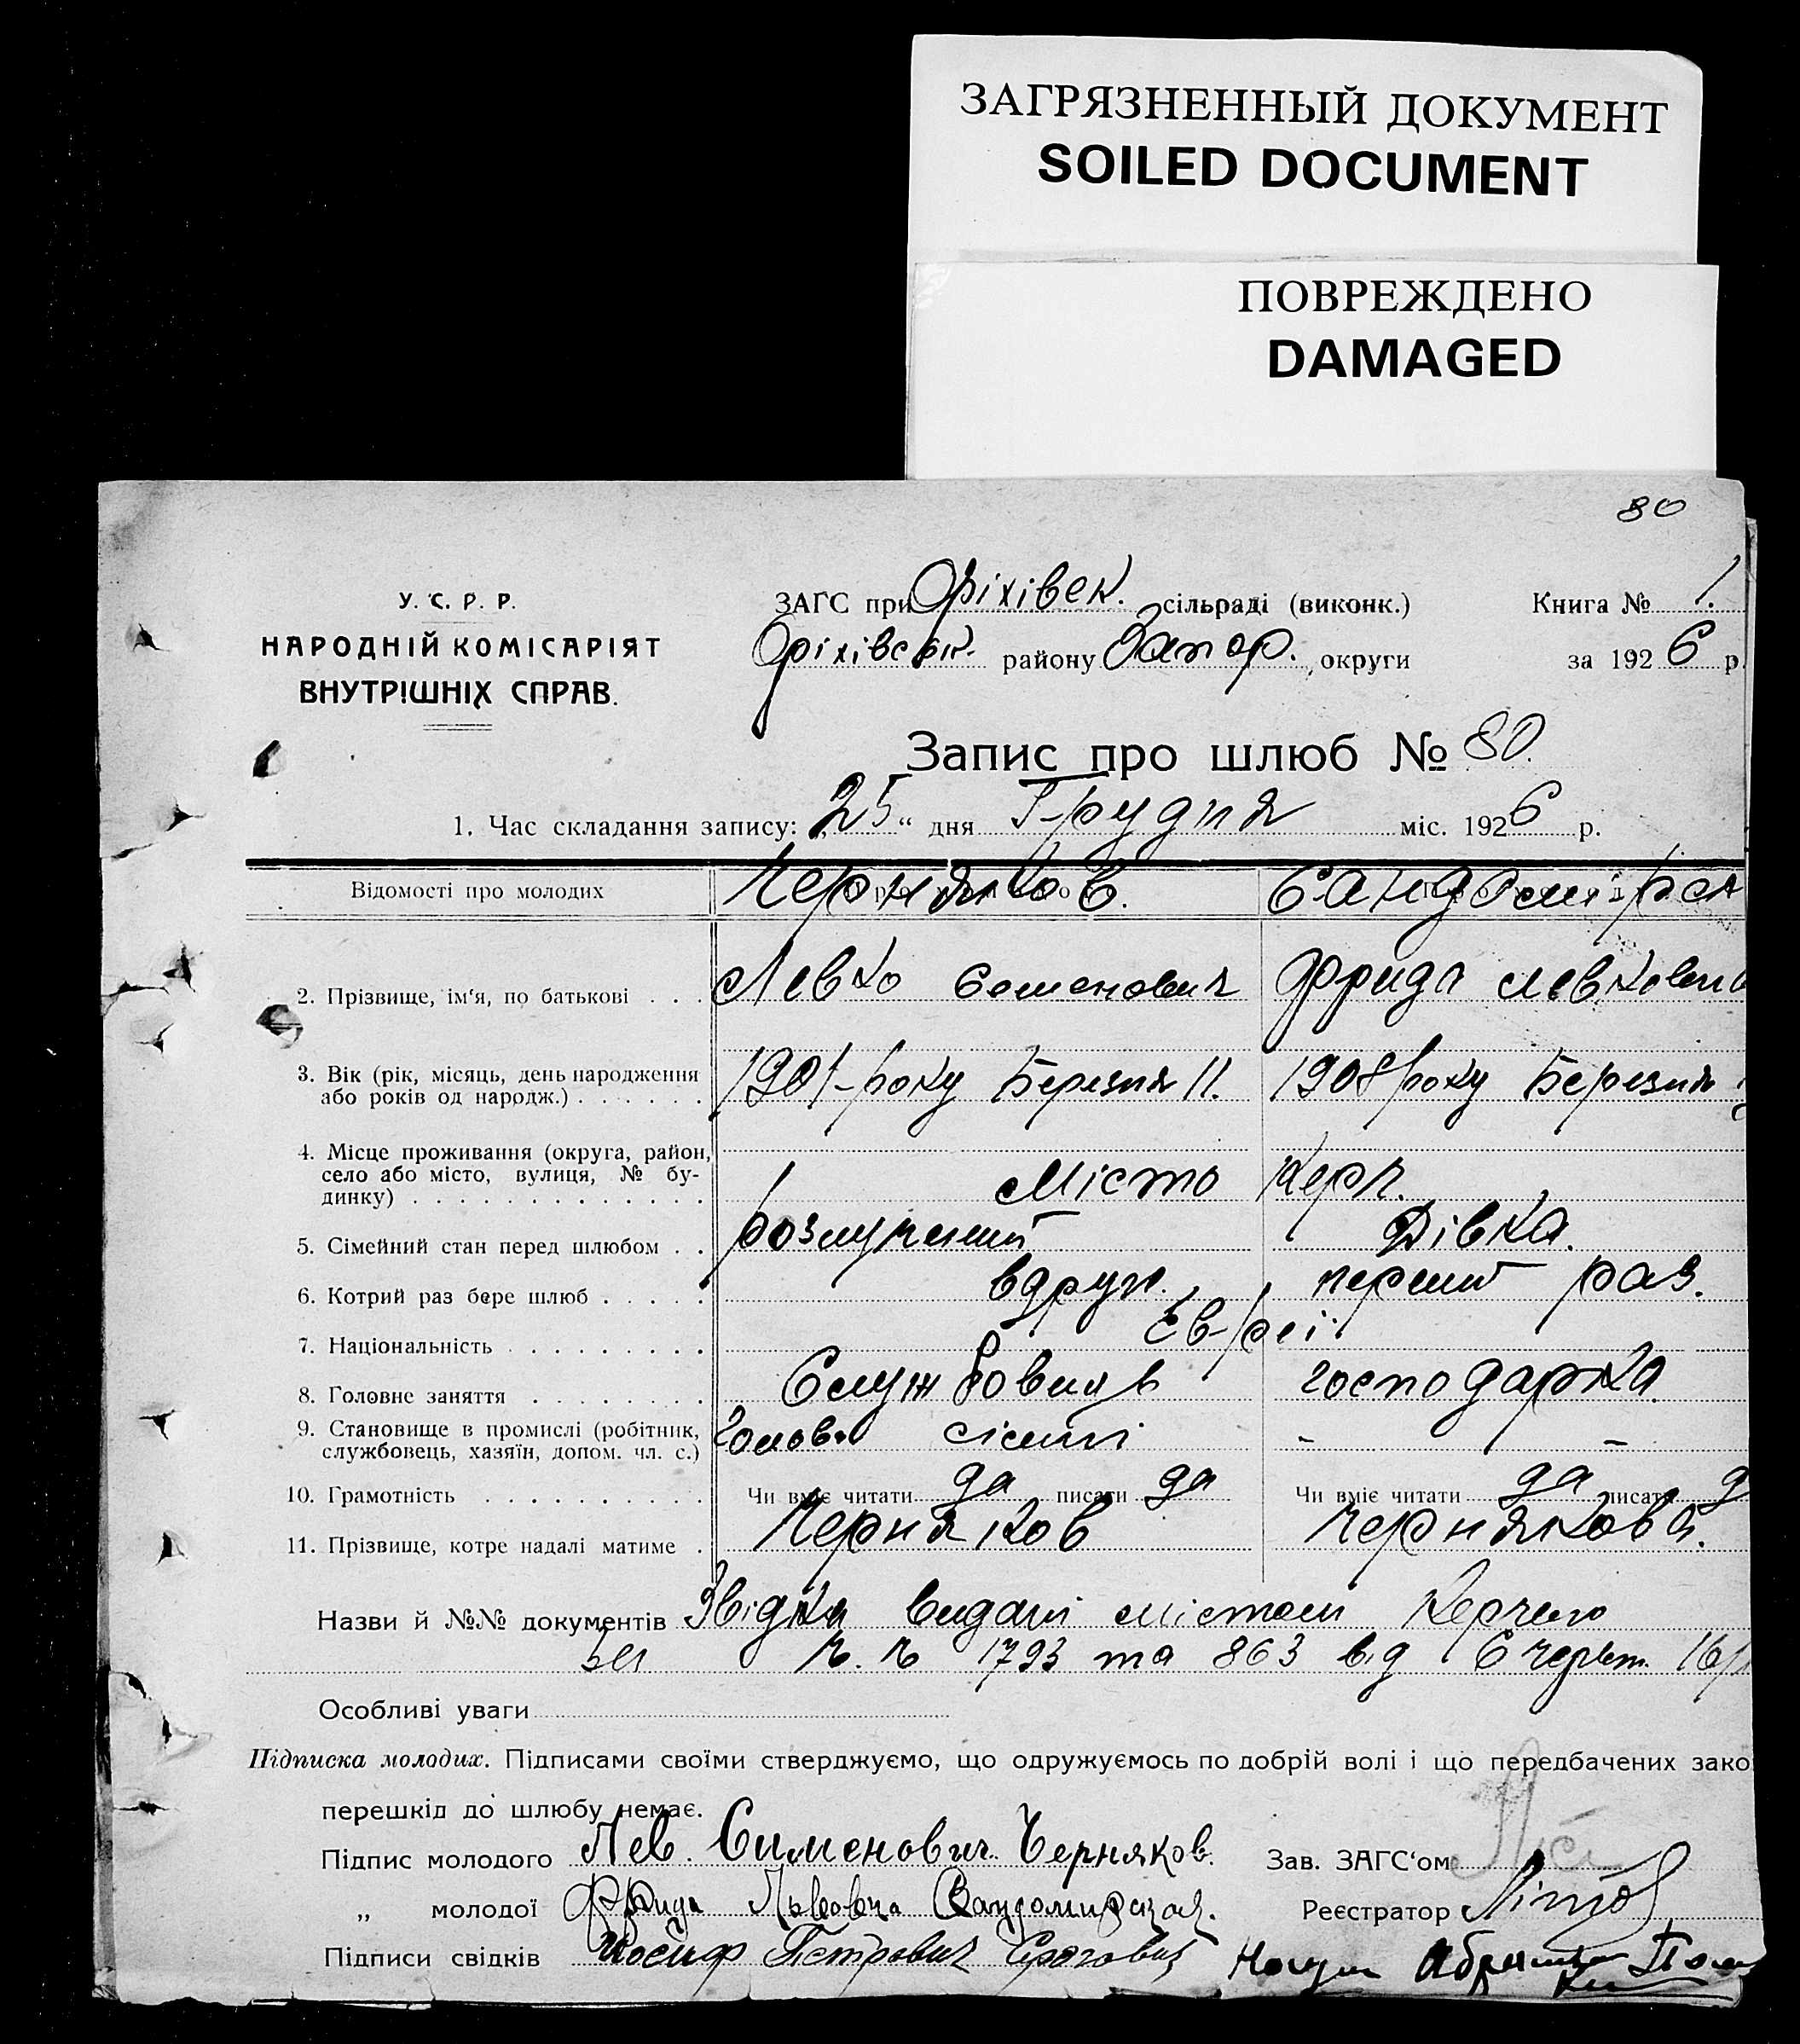 ЗАГРЯЗНЕННЫЙ ДОКУМЕНТ
SOILED DOCUMENT
ПОВРЕЖДЕНО
DAMAGED
80
У. С. Р. Р.
НАРОДНІЙ КОМІСАРІЯТ
ВНУТРІШНІХ СПРАВ.
ЗАГС при Оріхівськ. сільраді (виконк.)
Оріхівськ. району Запор. округи
Книга № 1.
за 1926 р.
Запис про шлюб № 80.
1. Час складання запису: „25“ дня Грудня міс. 1926 р.
Відомості про молодих Черняков. Сандомірск
2. Прізвище, ім‘я, по батькові . . . Левко Семенович Фрида Левковна
3. Вік (рік, місяць, день народження 1901-року Березня 11. 1908 року Березня
або років од народж.) . . . . . .
4. Місце проживання (округа, район,
село або місто, вулиця, № бу- Місто Керч.
динку) . . . . . . . . . . . . .
5. Сімейний стан перед шлюбом . . розлучений Дівка.
6. Котрий раз бере шлюб . . . . . вдруг. перший раз.
7. Національність . . . . . . . . . Євреї
8. Головне заняття . . . . . . . . Службовець господарка
9. Становище в промислі (робітник, Голова сімї - -
службовець, хазяїн, допом. чл. с.)
10. Грамотність . . . . . . . . . . Чи вміє читати да писати да Чи вміє читати да писати
11. Прізвище, котре надалі матиме . Черняков Чернякова.
Назви й №№ документів Звідки видані містом Керчию
1793 та 863 від 6
Особливі уваги
Підписка молодих. Підписами своїми стверджуємо, що одружуємось по добрій волі і що передбачених зако
перешкід до шлюбу немає.
Підпис молодого Лев. Сименович Черняков. Зав. ЗАГС‘ом
„ молодої Фрида Львовна Сандомирская. Реєстратор
Підписи свідків Иосиф Петрович